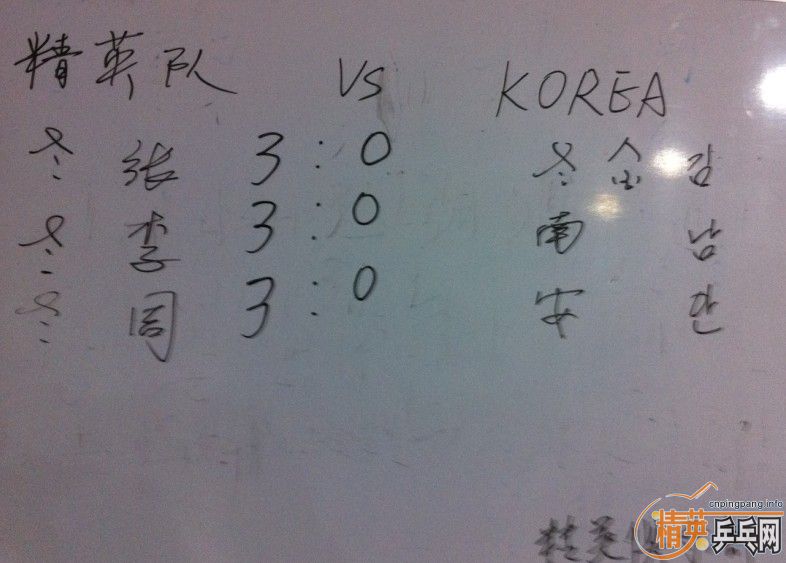 精英队 VS KOREA
冬 张 3:0 冬 金 김
冬 李 3:0 南 남
冬 周 3:0 安 안
cnpingpang.info
精英乒乓网